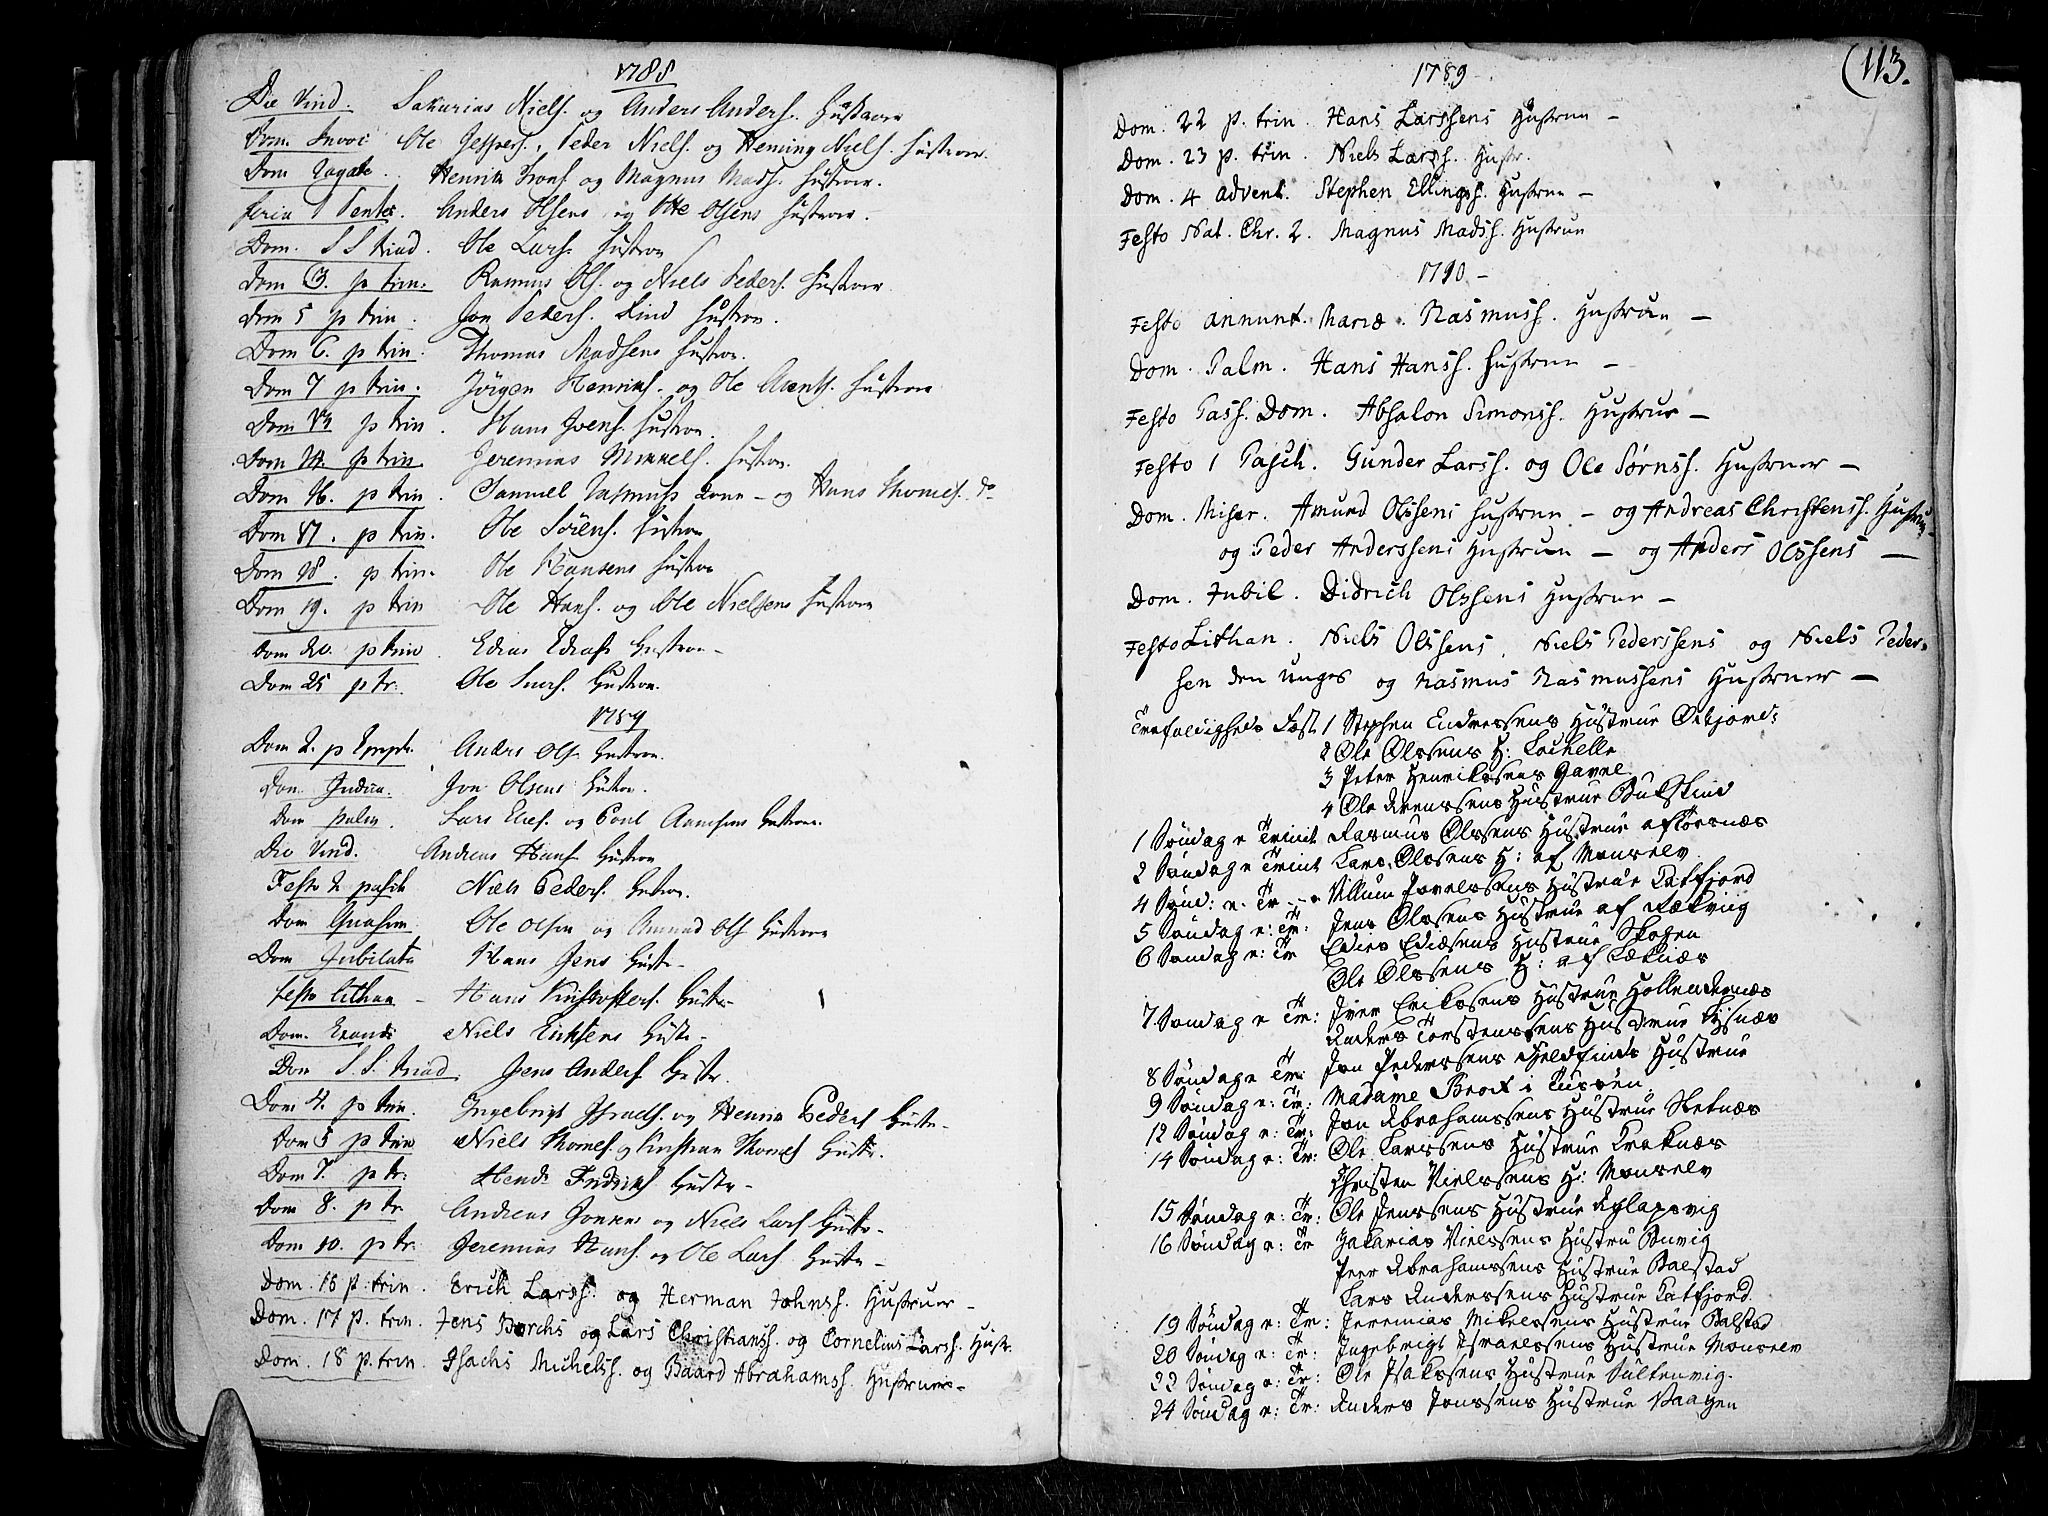 1788
Die Vind. Sakarias Niels. og Anders Anders. Hustruer
Dom. Invoc Ole Jespers., Peder Niels. og Heming Niels. Hustruer.
Dom Rogate. Henrik og Magnus Mads. Hustruer.
feria 1 Pentec. Anders Olsens og Ole Olsens Hustruer.
Dom. S S trind. Ole Lars. Hustrue
Dom 3. p trin. Rasmus Ols. og Niels Peders. Hustruer
Dom 5 p trin. Jon Peders. Find Hustrue.
Dom 6. p trin. Thomas Madsens Hustrue.
Dom 7 p trin. Jörgen Henriks. og Ole Arents. Hustruer
Dom 13 p trin. Hans Ivers. Hustrue.
Dom 14. p trin. Jeremias Mikkels. Hustrue.
Dom 16. p trin. Samuel Rasmuss Kone – og Hans Thomes. do
Dom 17. p trin. Ole Sörens. Hustrue
Dom 18. p trin. Ole Hansens Hustrue
Dom 19. p trin Ole Hans. og Ole Nielsens Hustruer
Dom 20. p trin. Edias Edias. Hustrue –
Dom 25 p tr. Ole Ivers. Hustrue.
1789
Dom 2. p Epiph. Anders Ols. Hustrue.
Dom. Judica. Jon Olsens Hustrue.
Dom palm. Lars Eles. og Poul Hustruer.
Die Vind. Andreas Hans. Hustrue
Festo 2 pasch Niels Peders. Hustrue.
Dom Quasim. Ole Olsen og Amund Ols. Hustruer
Dom Jubilate Hans Jens Hustr. –
Festo Lithan – Hans Kristoffers. Hustr –
Dom. Exaudi Niels Eriksens Hustr. –
Dom S. S. trind Jens Anders. Hustr.
Dom 4. p trin. Ingebrigt Israels. og Henrik Peders. Hustr. –
Dom 5 p trin Niels Thomes. og Kristian Thomes. Hustr.
Dom 7. p tr. Hend. Fridriks. Hustr –
Dom 8. p tr. Andreas Jonsens og Niels Lars. Hustr. –
Dom 10. p tr. Jeremias Hans. og Ole Lars. Hustr –
Dom. 16 p. trin. Erich Larss. og Herman Johnss. Hustruer –
Dom. 17 p. trin. Jens Borchs og Lars Christianss. og Cornelius Larss. Hustr.
Dom. 18 p. trin. Isachs Michelss. og Baard Abrahamss. Hustruers –
(113.
1789
Dom. 22 p. trin. Hans Larssens Hustrue –
Dom. 23 p. trin. Niels Larss. Hustr.
Dom. 4 advent. Stephen Ellingss. Hustrue –
Festo Nat. Chr. 2. Magnus Madss. Hustrue
1790 –
Festo annunt. Mariæ. Rasmuss. Hustrue –
Dom. Palm. Hans Hanss. Hustrue –
Festo Pass. Dom. Absalon Simonss. Hustrue –
Festo 1 Pasch. Gunder Larss. og Ole Sørnss. Hustruer –
Dom. Miser. Amund Olssens Hustrue – og Andreas Christenss. Hustrue
og Peder Anderssens Hustrue – og Anders Olssens –
Dom. Jubil. Didrich Olssens Hustrue –
Festo Lithan. Niels Olssens, Niels Pederssens og Niels Peder-
sen den unges og Rasmus Rasmussens Hustruer –
Trefoldigheds Fæst 1 Stephen Endressens Hustrue Örfjord:
2 Ole Olssens H: Lochelle
3 Peter Henrikssens Gavel
4 Ole Arenssens Hustrue Bukskind
1 Søndag e Trinit Rasmus Olssens Hustrue af
2 Søndag e Trinit Lars Olssens H: af Monselv
4 Sønd: e. Tr. – Villum Hustrue Katfjord
5 Søndag e: Tr: Jens Olssens Hustrue af Rækviig
6 Søndag e: Tr Edies Ediæsens Hustrue Skogen
Ole Olssens H: af Læknæs
7. Søndag e Tr: Iver Erikssens Hustrue Hollendernæs
Anders Torstenssens Hustrue Kysnæs
8 Søndag e Tr: Jon Pederssens Fjeldfinds Hustrue
9 Søndag e: Tr: Madame Brox i Tusøen.
12 Søndag e: Tr: Jon Abrahamssens Hustrue Sletnæs
14 Søndag e: Tr: Ole Larssens Hustrue Kraknæs
Christen Nielssens H: Monselv
15 Søndag e: Tr: Ole Jenssens Hustrue Aglapsvig
16 Søndag e: Tr Zakarias Nielssens Hustru Buvig
Peer Abrahamssens Hustrue Balstad
Lars Anderssens Hustrue Katfjord.
19 Søndag e: Tr: Jeremias Mikelssens Hustrue Balstad
20 Søndag e: Tr: Ingebrigt Israelssens Hustrue Monselv
22 Søndag e: Tr: Ole Isakssens Hustrue Sultenvig.
24 Søndag e: Tr: Anders Jonssens Hustrue Vaagen